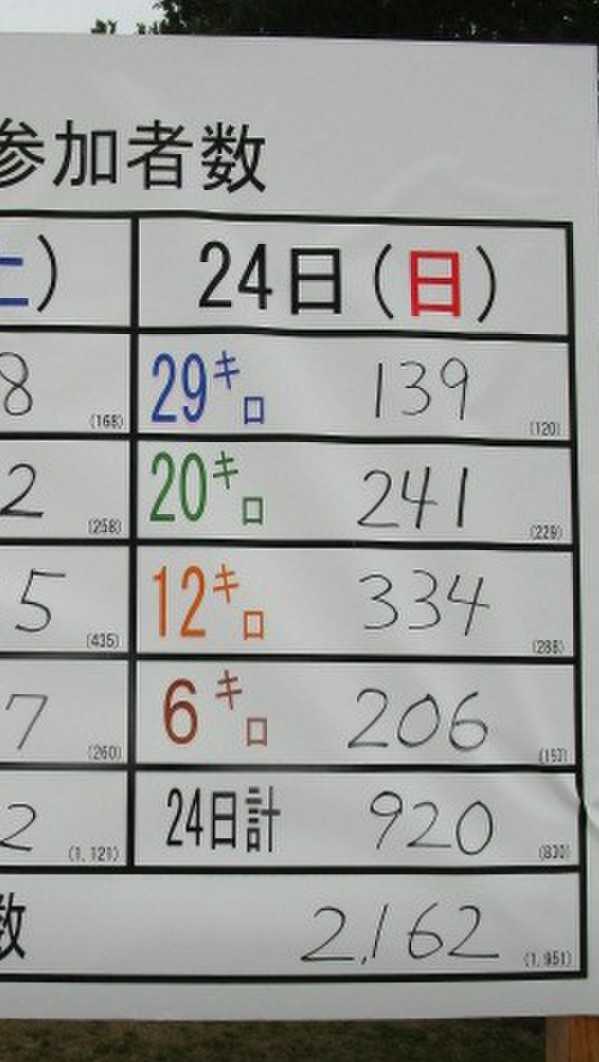 参加者数
土) 24日(日)
8 (168) 29キロ 139 (120)
2 (258) 20キロ 241 (229)
5 (435) 12キロ 334 (288)
7 (260) 6キロ 206 (193)
2 (1,121) 24日計 920 (830)
数 2,162 (1,951)